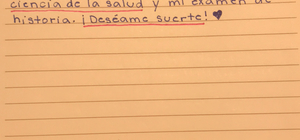 ciencia de la salud y mi examen de
historia. ¡Deséame suerte! ♥